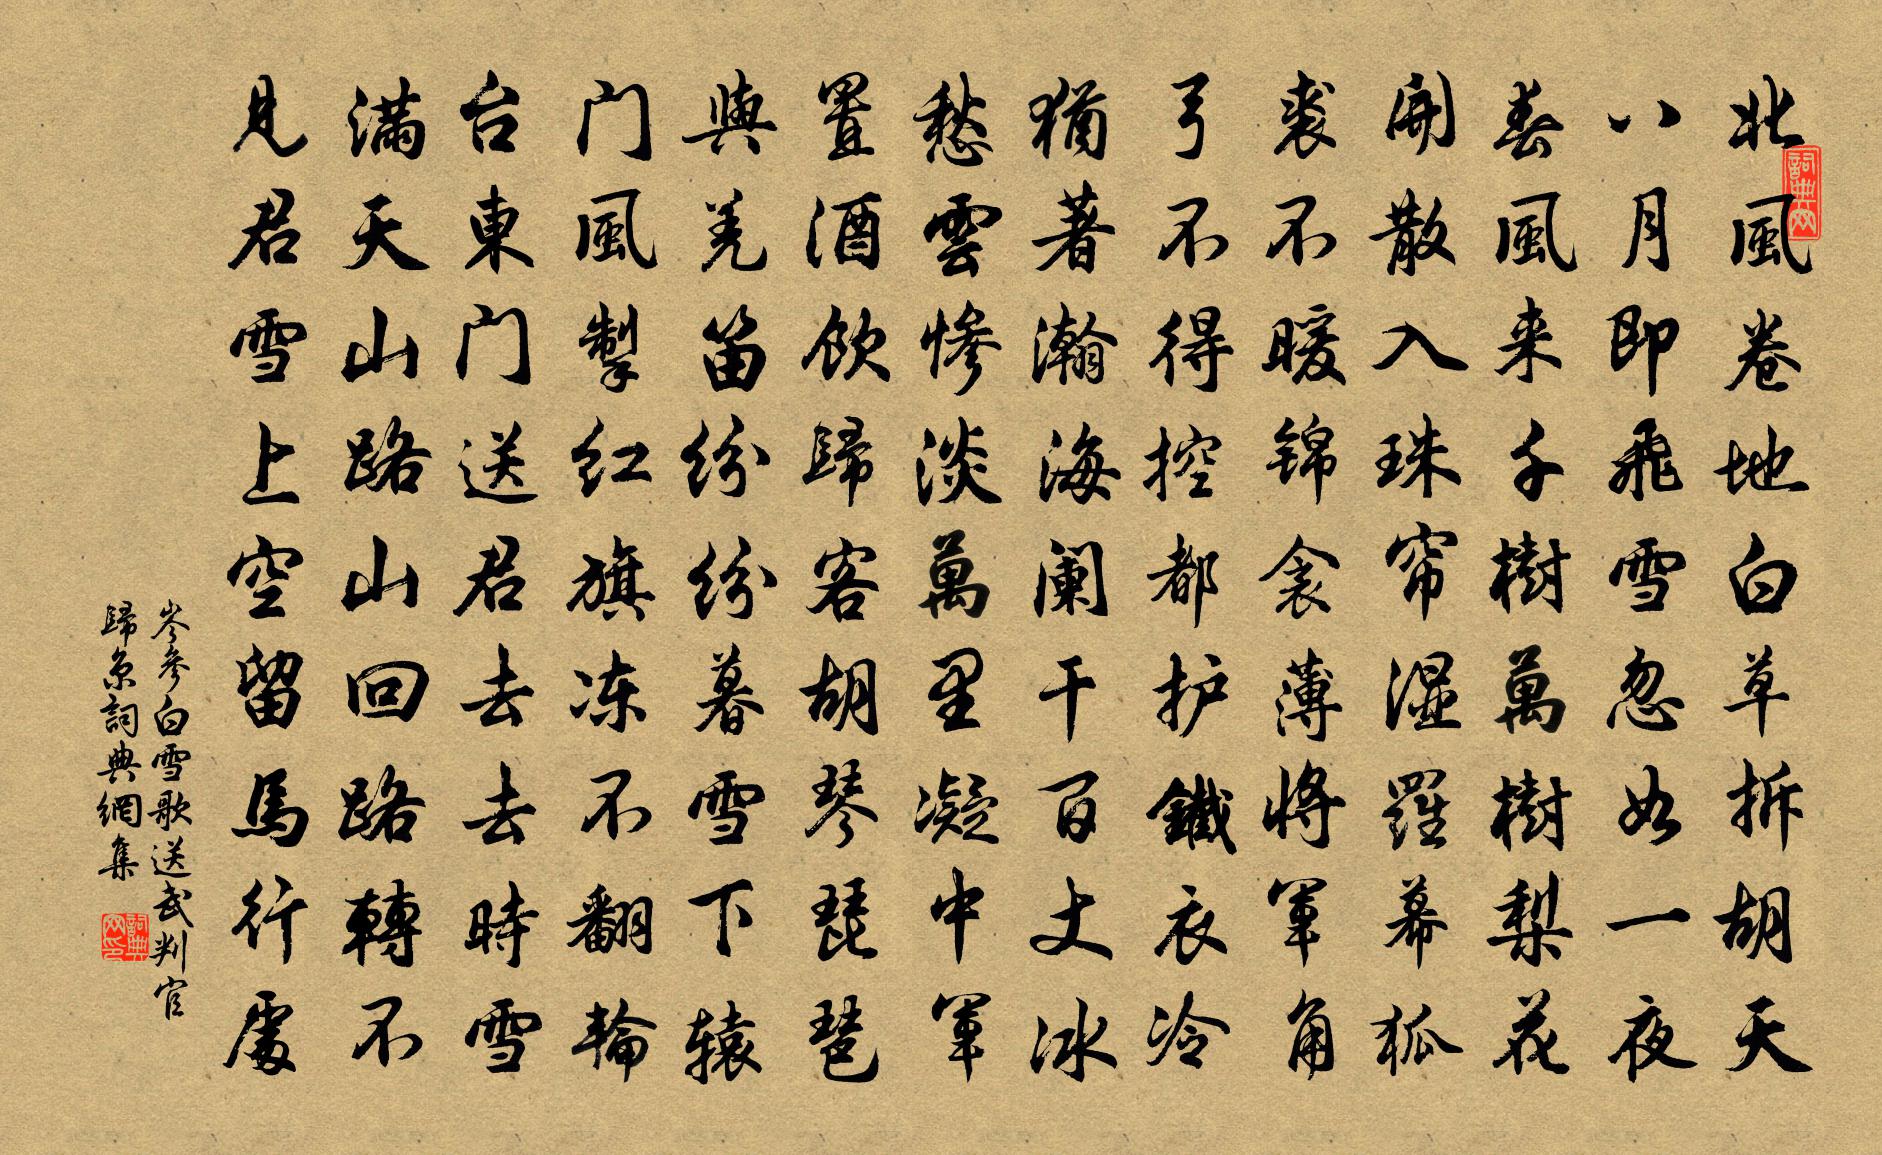 北風卷地白草拆胡天
八月即飛雪忽如一夜
春風来千樹萬樹梨花
開散入珠帘湿羅幕狐
裘不暖锦衾薄将軍角
弓不得控都护鐵衣冷
猶著瀚海阑干百丈冰
愁雲惨淡萬里凝中軍
置酒飲歸客胡琴琵琶
與羌笛纷纷暮雪下辕
门風掣红旗冻不翻輪
台東门送君去去時雪
满天山路山回路轉不
見君雪上空留馬行處
岑參白雪歌送武判官
歸京詞典網集
詞典网
詞典网印